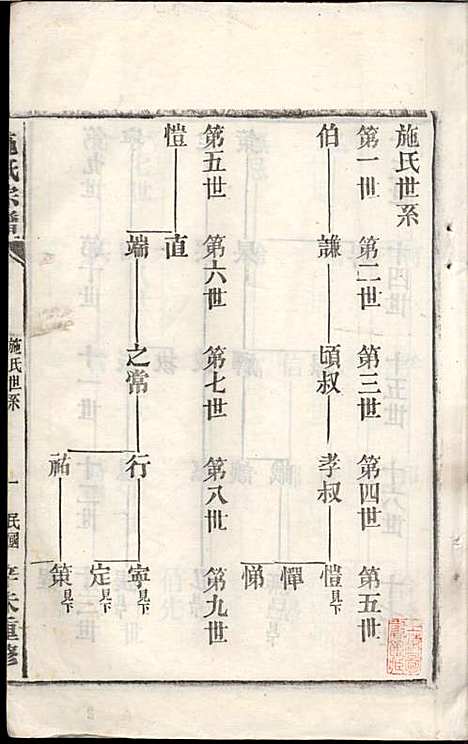 施氏世系
第一世 第二世 第三世 第四世 第五世
伯 謙 頃叔 孝叔 愷見下
憚
悌
第五世 第六世 第七世 第八世 第九世
愷 直
端 之常 行 寧見下
定見下
祐 策見下
施氏宗譜 施氏世系 一 民國辛未重修